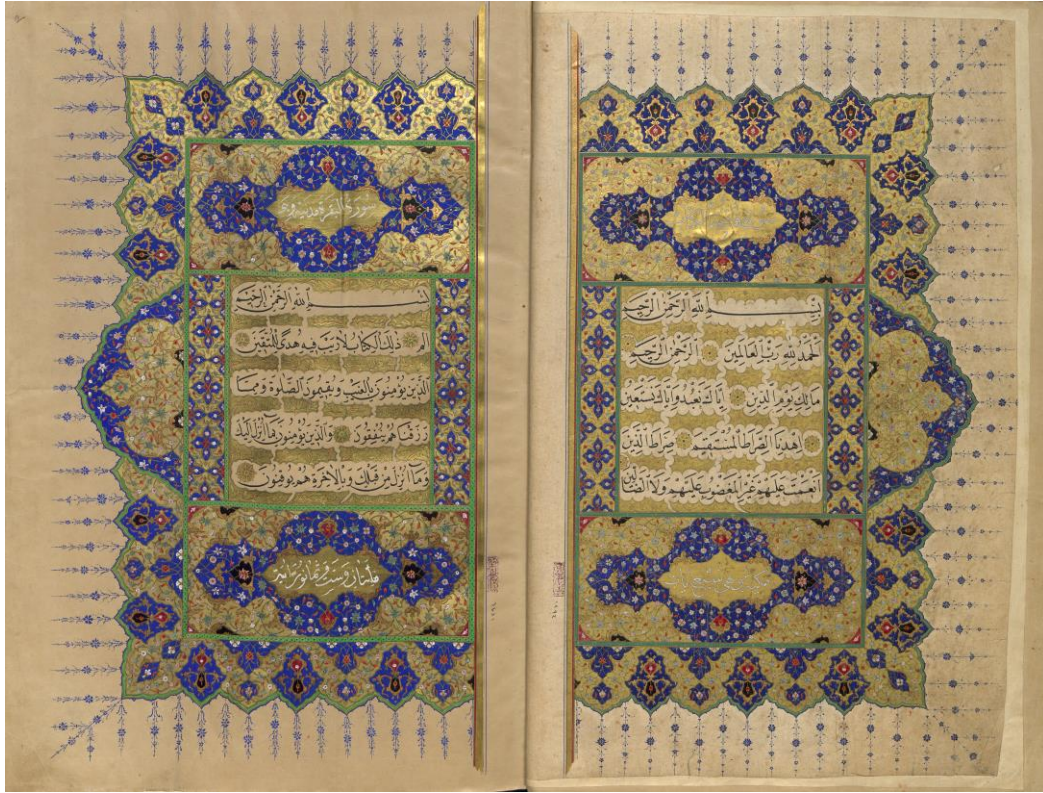 بِسْمِ اللّٰهِ الرَّحْمٰنِ الرَّحِيمِ
اَلْحَمْدُ لِلّٰهِ رَبِّ الْعَالَمِينَ الرَّحْمٰنِ الرَّحِيمِ
مَالِكِ يَوْمِ الدِّينِ اِيَّاكَ نَعْبُدُ وَاِيَّاكَ نَسْتَعِينُ
اِهْدِنَا الصِّرَاطَ الْمُسْتَقِيمَ صِرَاطَ الَّذِينَ
اَنْعَمْتَ عَلَيْهِمْ غَيْرِ الْمَغْضُوبِ عَلَيْهِمْ وَلَا الضَّالِّينَ
سورة البقرة مدنية وهى
بِسْمِ اللّٰهِ الرَّحْمٰنِ الرَّحِيمِ
الم ذٰلِكَ الْكِتَابُ لَا رَيْبَ فِيهِ هُدًى لِلْمُتَّقِينَ
اَلَّذِينَ يُؤْمِنُونَ بِالْغَيْبِ وَيُقِيمُونَ الصَّلٰوةَ وَمِمَّا
رَزَقْنَاهُمْ يُنْفِقُونَ وَالَّذِينَ يُؤْمِنُونَ بِمَا اُنْزِلَ اِلَيْكَ
وَمَا اُنْزِلَ مِنْ قَبْلِكَ وَبِالْاٰخِرَةِ هُمْ يُوقِنُونَ
مائتان وست وثمانون آية